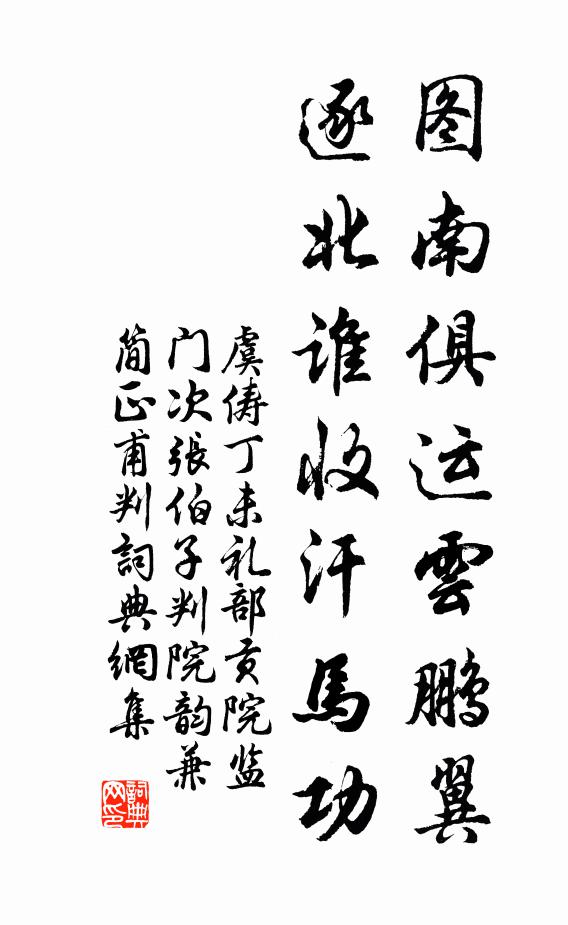 图南俱运雲鹏翼
逐北谁收汗馬功
虞俦丁未礼部贡院监
门次張伯子判院韵兼
简正甫判詞典網集
詞典
网印